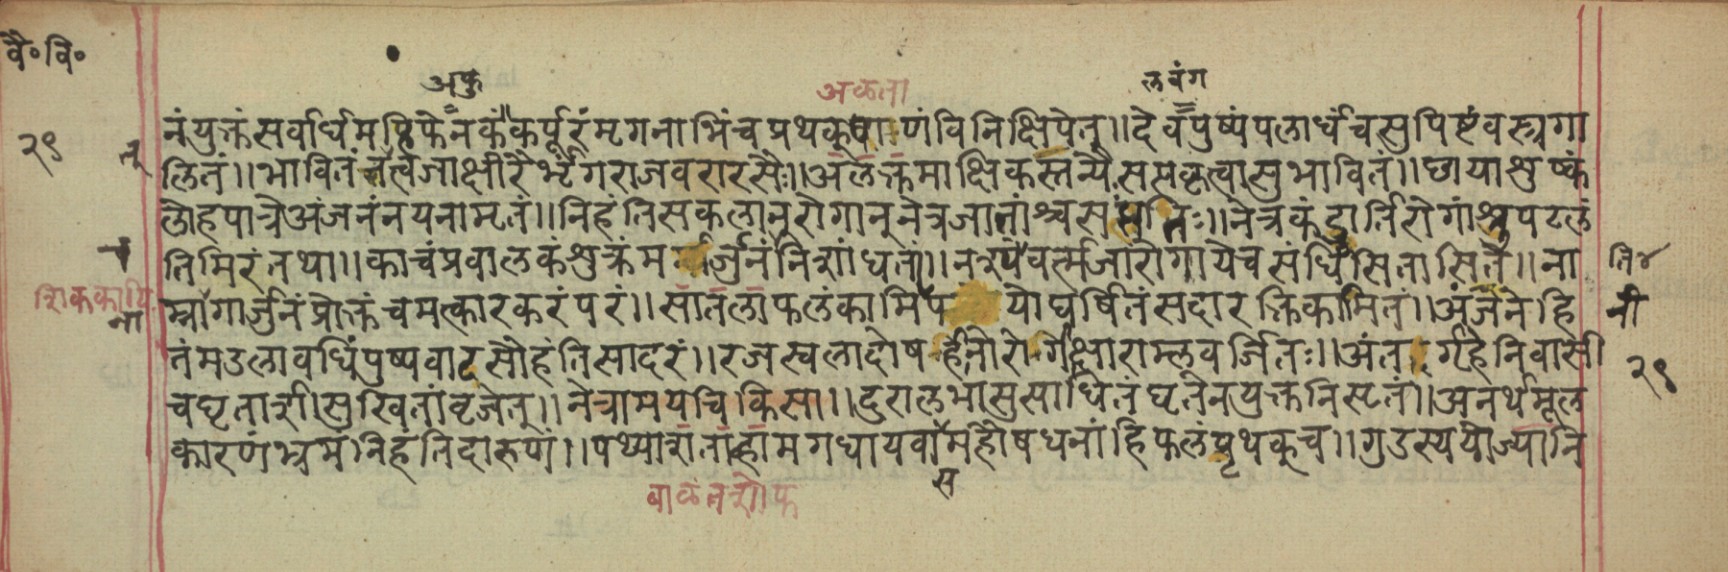 वै॰वि॰
अफु
अळता
लवंग
२९
नंयुक्तंसर्वार्धमहिफेनकं॥कर्पूरंमृगनाभिंचप्रथक्षाणंविनिक्षिपेत्॥देवपुष्पंपलार्धंचसुपिष्टंवस्त्रगा
लितं॥भावितंत्वजाक्षीरैर्भृंगराजवरारसैः॥अलक्तमाक्षिकस्तन्यैसप्तकृत्वासुभावितं॥छायाशुष्कं
लोहपात्रेअंजनंनयनामृतं॥निहंतिसकलान्रोगान्नेत्रजातांश्च नेत्रकंड्वार्तिरोगांश्चपटलं
तिमिरंतथा॥काचंप्रवालकंशुक्रंम र्जुनंनिशांधतां॥ वर्त्मजारोगायेचसंधिसितासिते॥ना
म्नागार्जुनंप्रोक्तंचमत्कारकरंपरं॥सातलाफलंकामिप योघर्षितंसदारक्तिकामितं॥अंजनेहि
तंमडलावधिंपुष्पवाटसौहंतिसादरं॥रजस्वलादोषहीनोरोगीक्षाराम्लवर्जितः॥अंतर्गृहेनिवासी
चघृताशीसुखितांवृजेत्॥नेत्रामयचिकित्सा॥दुरालभासुसाधितंघृतेनयुक्तनिसृतं॥अनर्थमूल
कारणंभ्रमंनिहंतिदारुणं॥पथ्याशताह्वामगधायवामहौषधनांहिफलंपृथक्च॥गुडस्ययोज्यानि
ति४
नी
२९
स
वाळंतशोफ